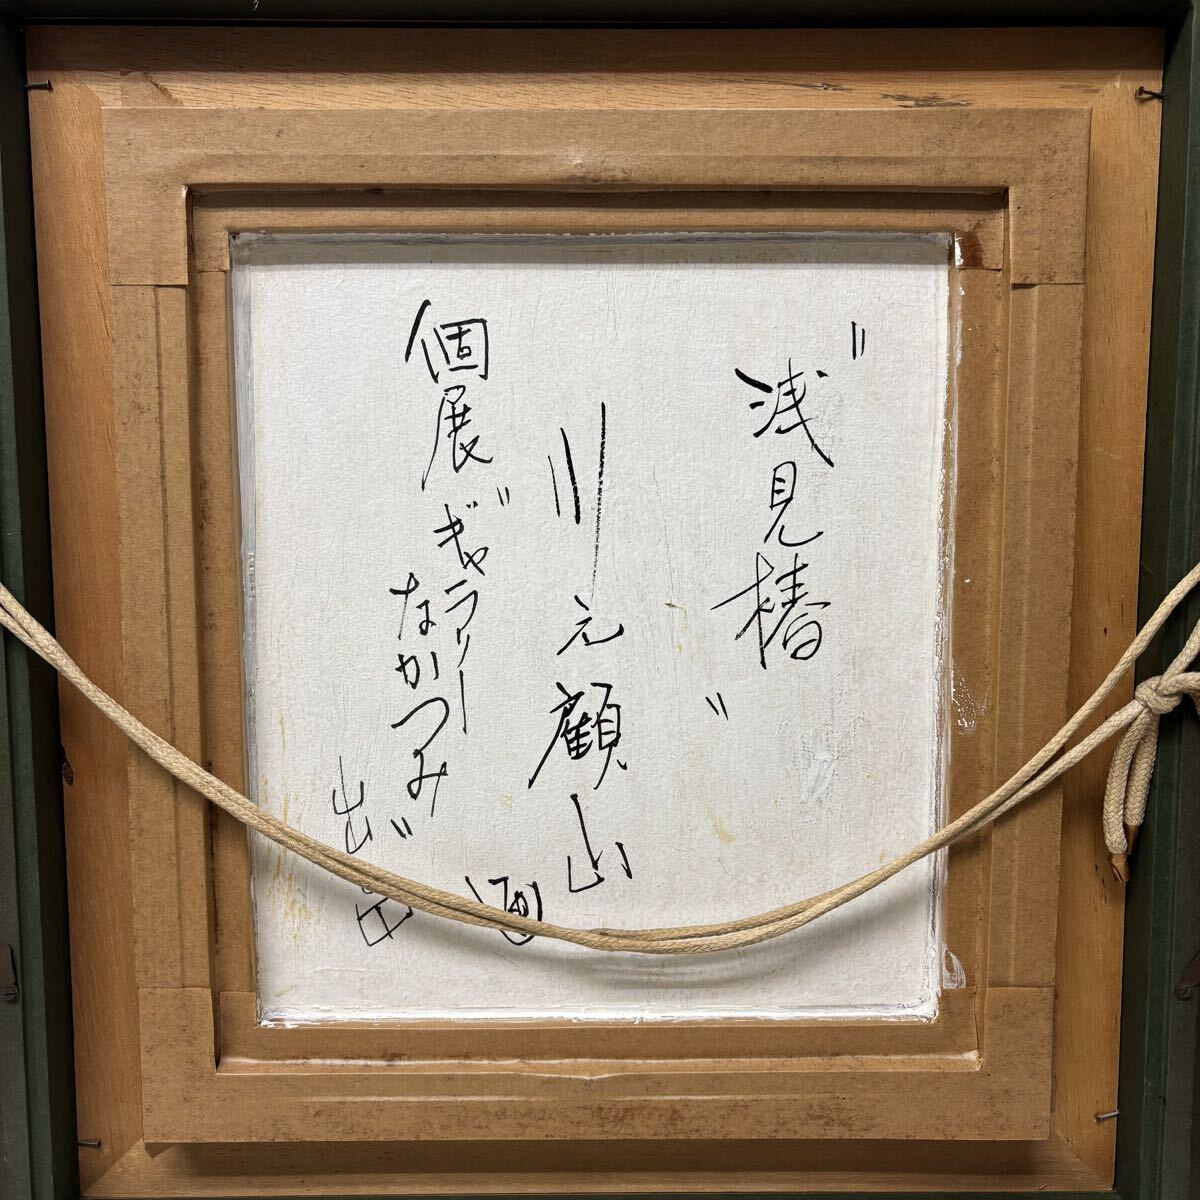 "浅見椿"
川元顧山 画
個展"ギャラリー
なかつみ"
出品